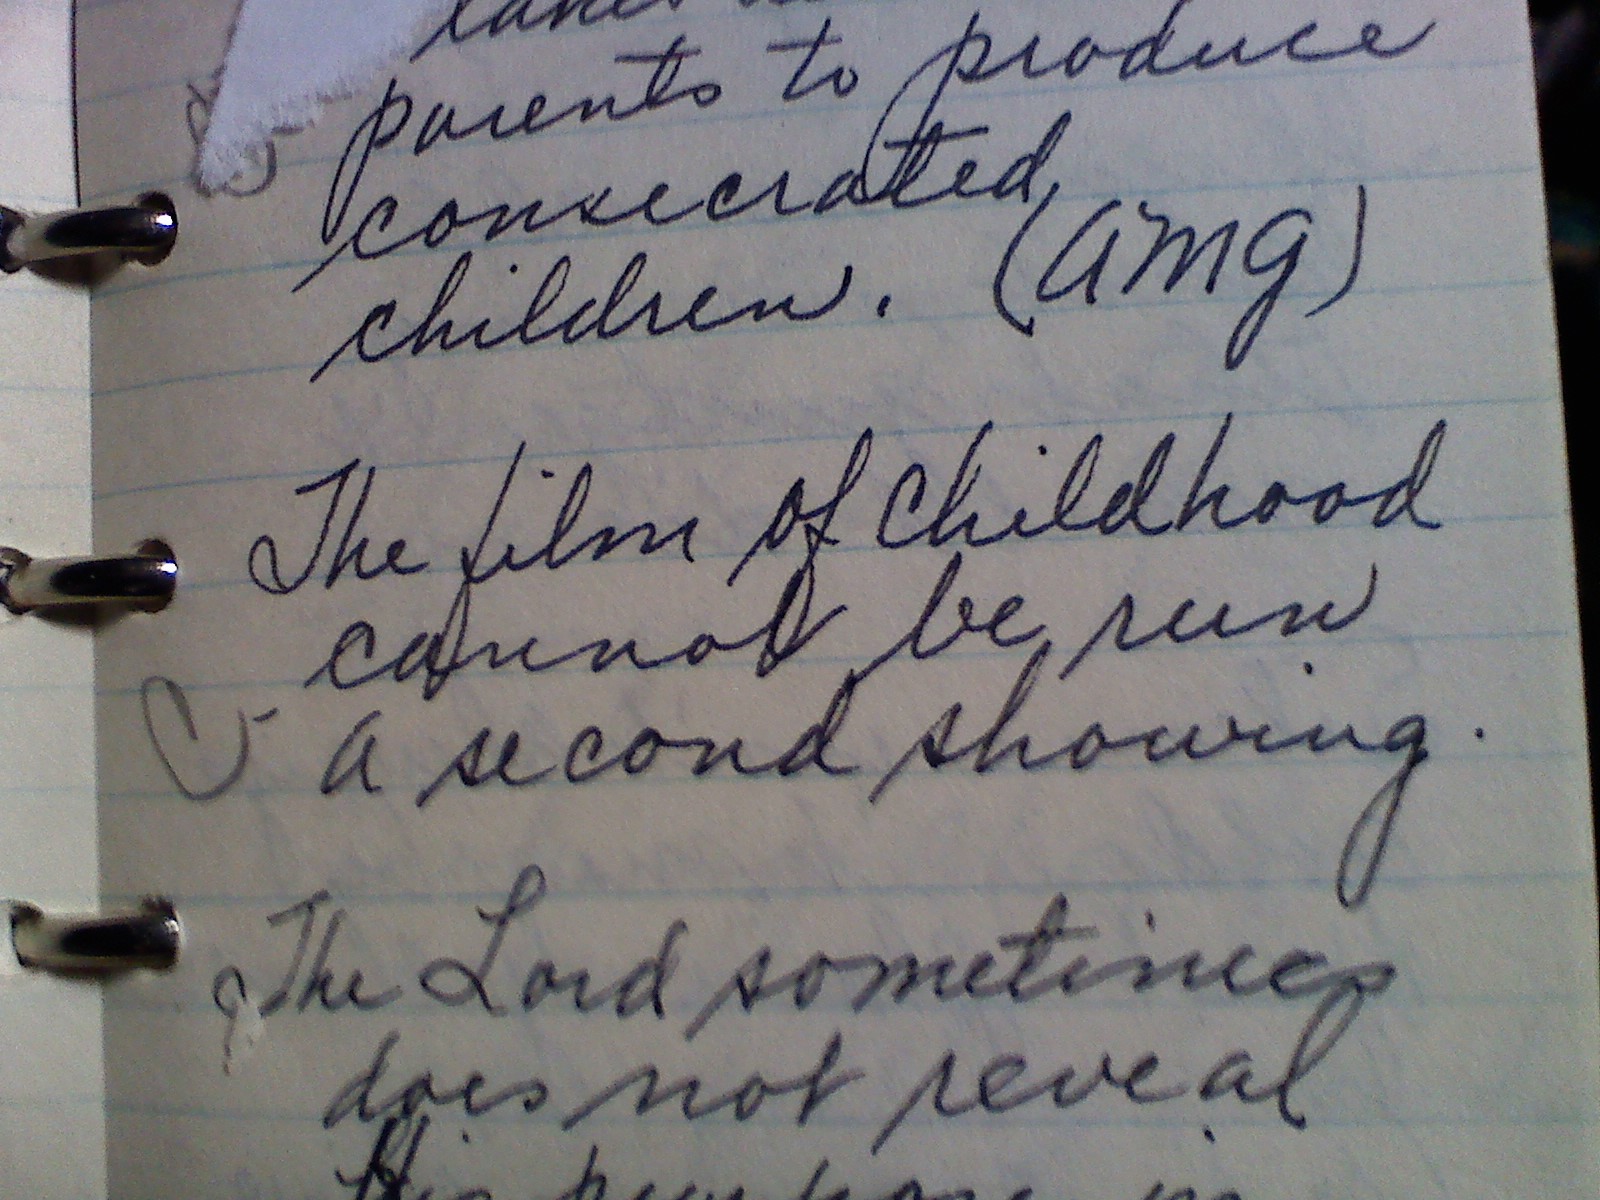 takes
parents to produce
consecrated
children. (AMG)
The film of childhood
cannot be run
a second showing.
The Lord sometimes
does not reveal
His purpose in